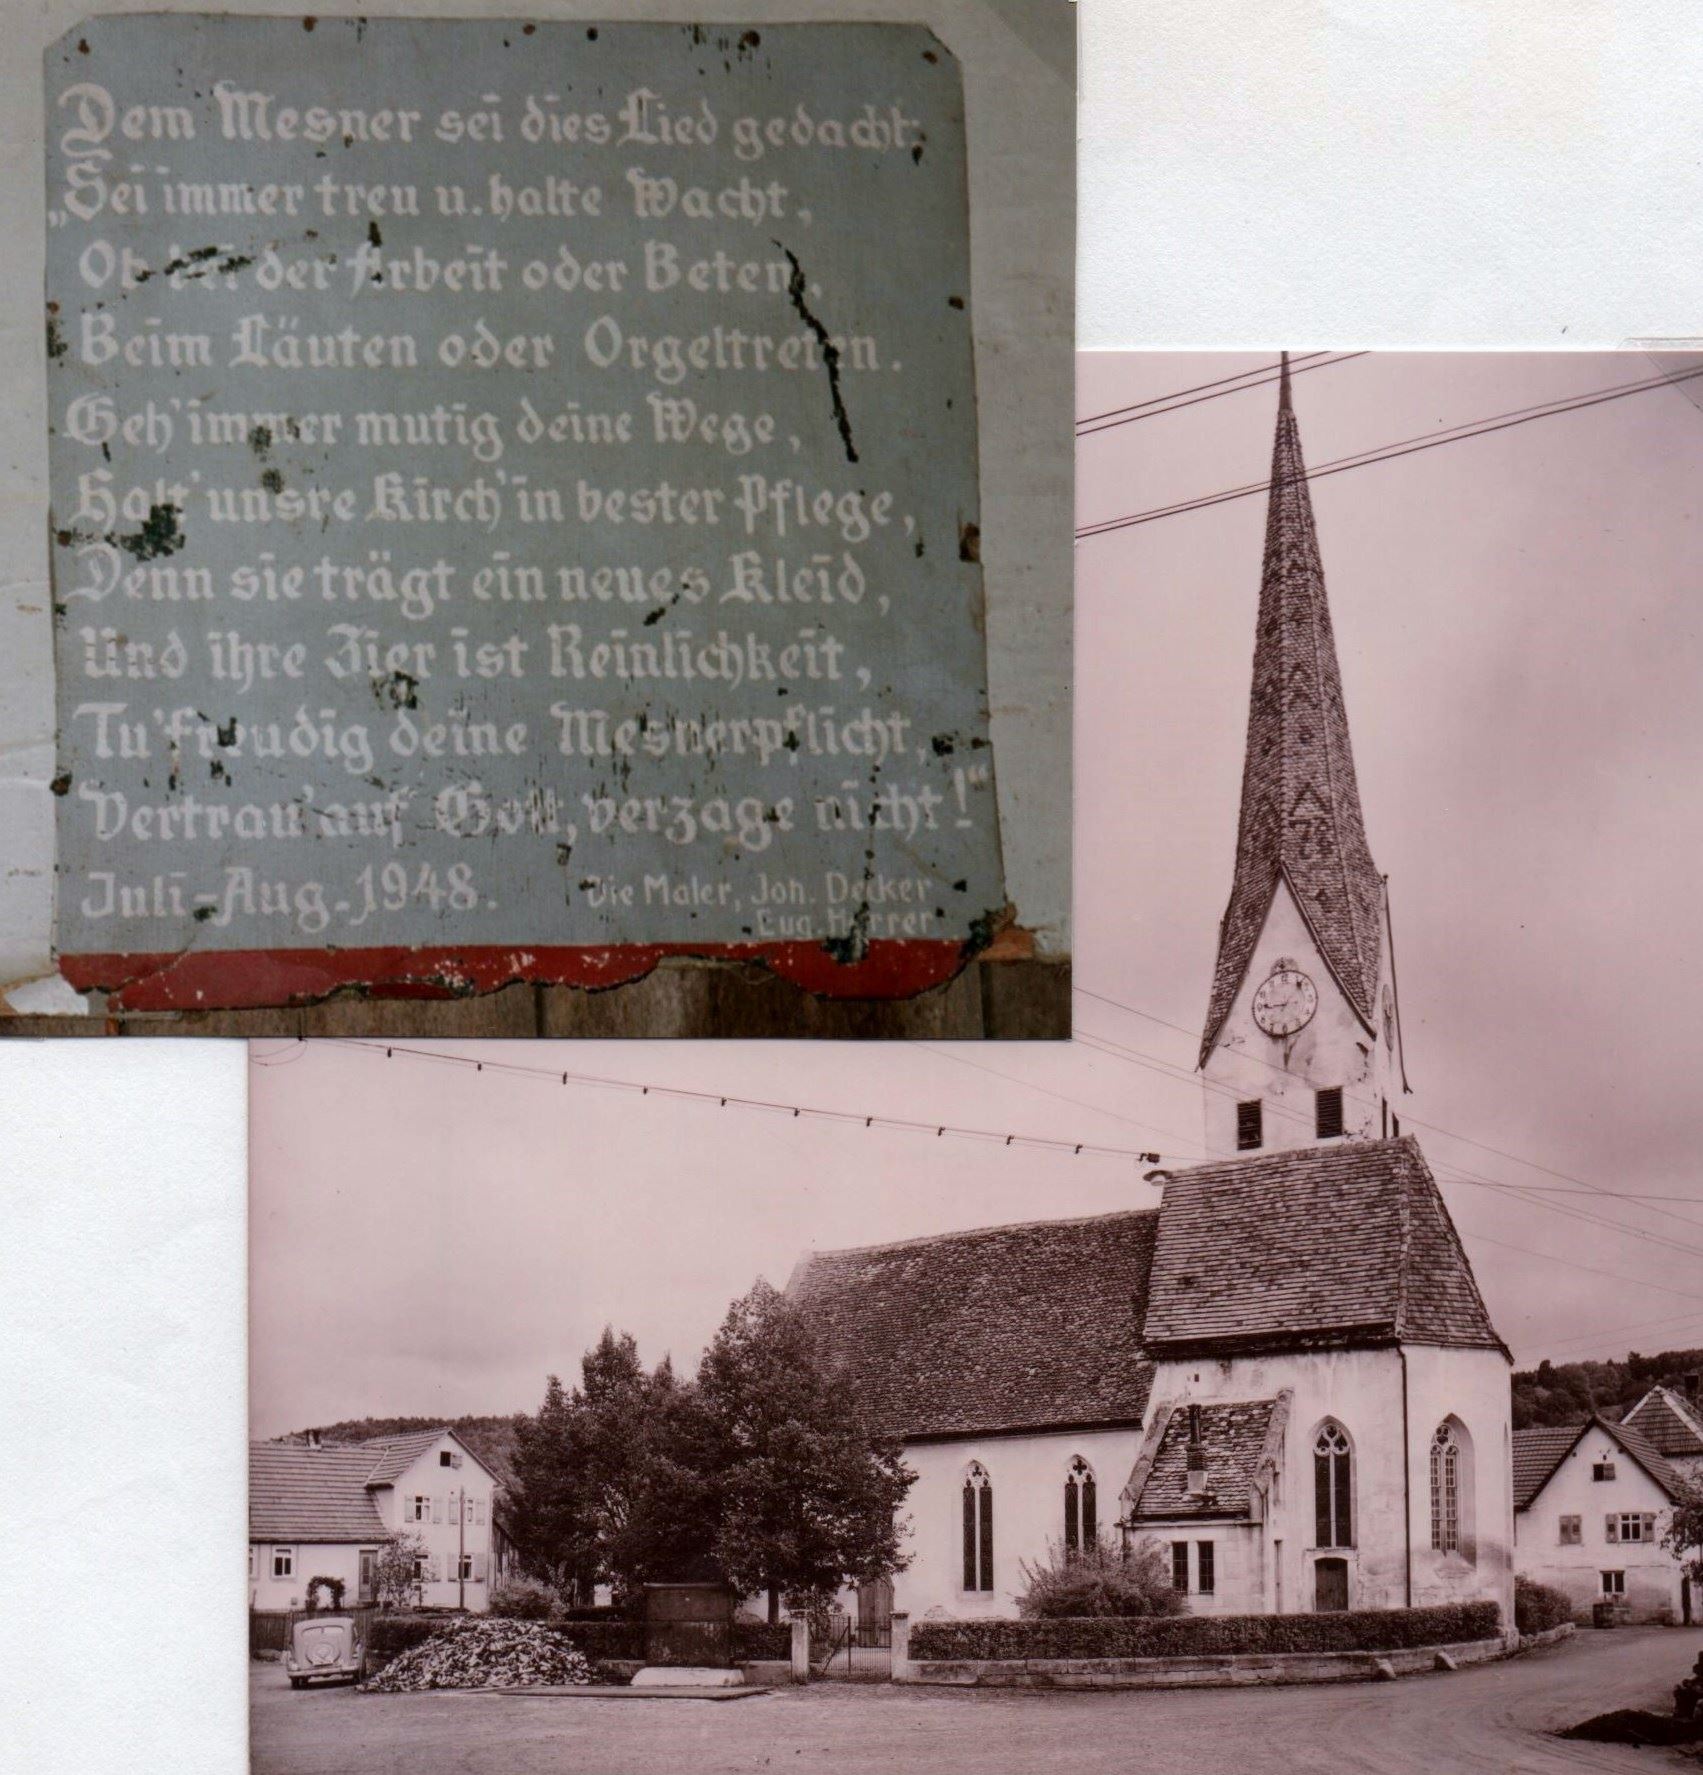 Dem Mesner sei dies Lied gedacht:
„Sei immer treu u. halte Wacht,
Ob bei der Arbeit oder Beten,
Beim Läuten oder Orgeltreten.
Geh' immer mutig deine Wege,
Halt' unsre Kirch' in bester Pflege,
Denn sie trägt ein neues Kleid,
Und ihre Zier ist Reinlichkeit,
Tu' freudig deine Mesnerpflicht,
Vertrau' auf Gott, verzage nicht!“
Juli-Aug. 1948. Die Maler, Joh. Decker
Eug.